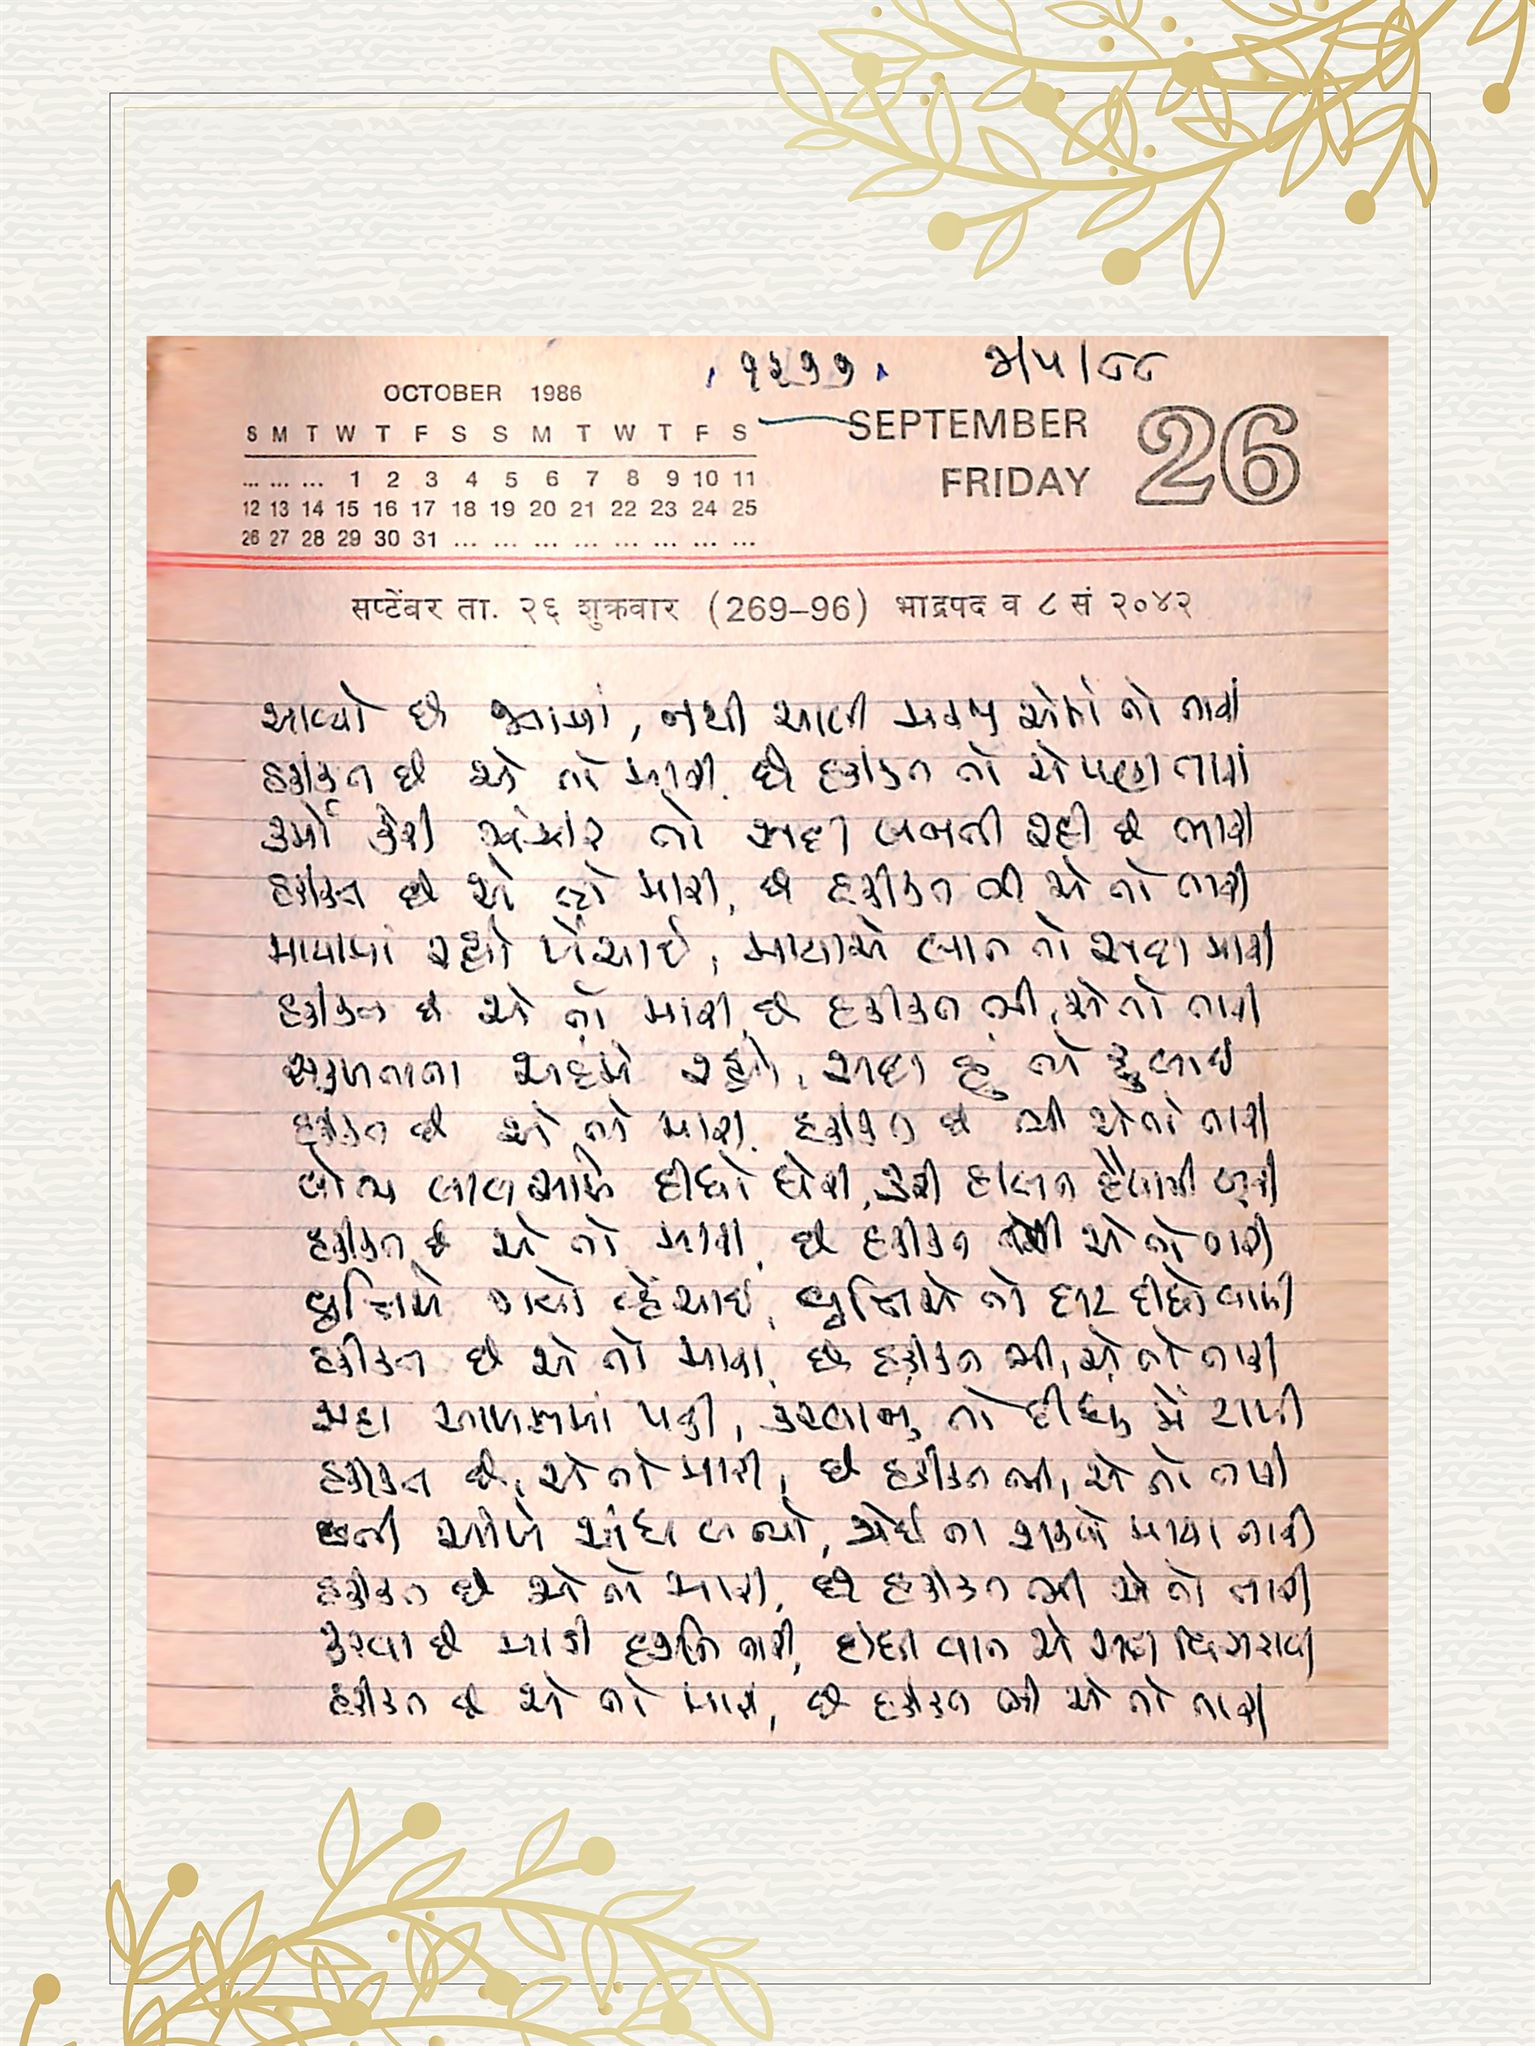 ૧૨૧૧ ૭/૫/૮૮
OCTOBER 1986
S M T W T F S S M T W T F S
... ... ... 1 2 3 4 5 6 7 8 9 10 11
12 13 14 15 16 17 18 19 20 21 22 23 24 25
26 27 28 29 30 31 ... ... ... ... ... ... ... ...
SEPTEMBER
FRIDAY
26
सप्टेंबर ता. २६ शुक्रवार (269–96) भाद्रपद व ८ सं २०४२
આવ્યો છે જગમાં, નથી આવી સમજ એમાં તો તારી
હકીકત છે એ તો મારી, છે હકીકત તો એ પણ તારી
કર્મો કેરી તો સદા બનતી રહી છે ભારી
હકીકત છે એ તો મારી, છે હકીકત બી એ તો તારી
માયામાં રહ્યો ખેંચાઈ, માયાએ લાત તો સદા મારી
હકીકત છે એ તો મારી, છે હકીકત બી, એ તો તારી
સફળતાના અહંમે રહ્યો, સદા હું તો ફુલાઈ
હકીકત છે એ તો મારી, હકીકત છે બી એ તો તારી
લોભ લાલસાએ દીધો ઘેરી, કરી હાલત હૈયાની બૂરી
હકીકત છે એ તો મારી, છે હકીકત બી એ તો તારી
વૃત્તિએ ગયો વ્હેંચાઈ, વૃત્તિએ તો દાટ દીધો વાળી
હકીકત છે એ તો મારી, છે હકીકત બી, એ તો તારી
સદા આળસમાં પડી, કરવાનું તો દીધું મેં ટાળી
હકીકત છે, એ તો મારી, છે હકીકત બી, એ તો તારી
છતી આંખે અંધ બન્યો, જોઈ ના શક્યો માયા તારી
હકીકત છે એ તો મારી, છે હકીકત બી એ તો તારી
કરવા છે માફી તારી, વાત એ સદા વિસરાવી
હકીકત છે એ તો મારી, છે હકીકત બી એ તો તારી